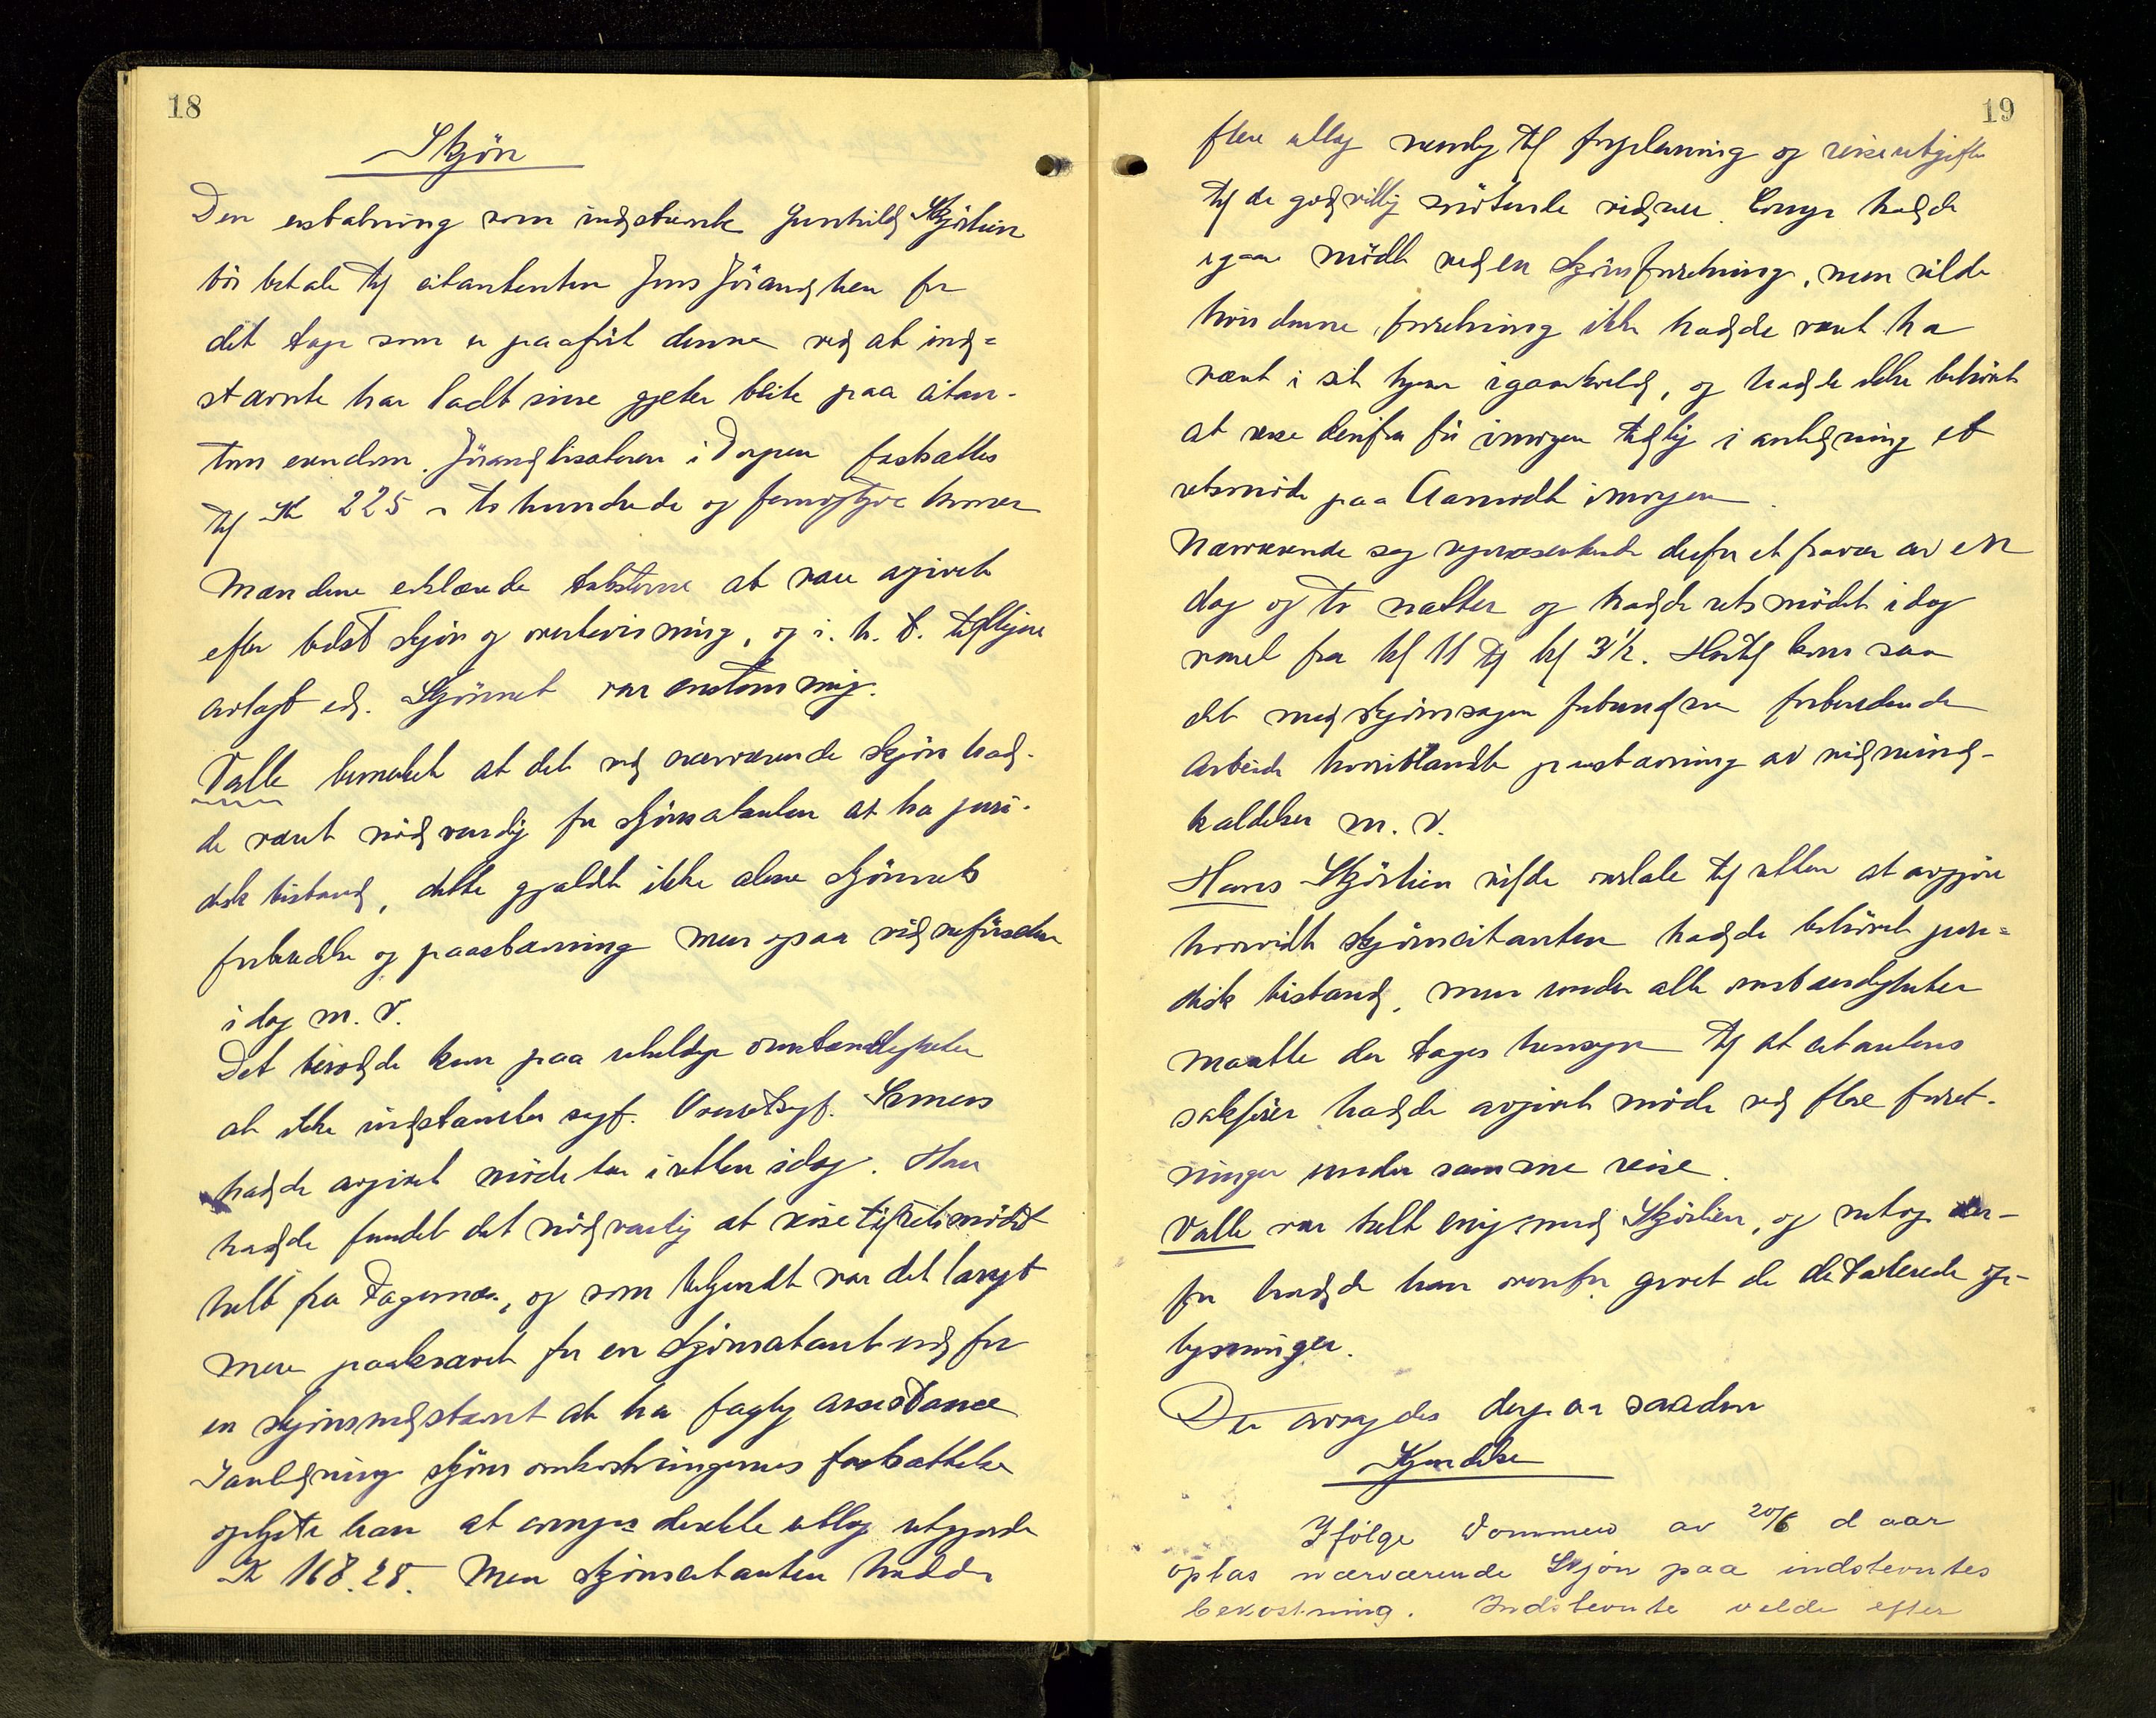 18
Skjön
Den erstatning som indstevnte Gunhild Skjölien
bör betale til citantenten Jens Jörandlien for
det tap som er paaført denne ved at ind=
stevnte har ladt sine gjeter beite paa citan-
tens eiendom. Jörandlisæteren i Torpen fastsættes
til Kr 225 – to hundrede og femogtyve kroner
Mændene erklærede taksterne at være avgivet
efter bedst skjön og overbevisning, og i. h. t. tidligere
avlagt ed. Skjönnet var enstemmig.
Valle bemerket at det ved nærværende skjön had-
de været nödvendig for skjönscitanten at ha juri-
disk bistand, dette gjaldt ikke alene skjönnets
forberedelse og paastevning men ogsaa vidneförselen
idag m. v.
Det berodde kun paa uheldige omstændigheter
at ikke indstevntes sagf. Overretssagf.
hadde avgivet möde her i retten idag. Han
hadde fundet det nödvendig at reise til retsmödet
helt fra Fagernes, og som bekjendt var det langt
mere paakrævet for en skjönscitant end for
en skjönsindstevnt at ha faglig assistance
I anledning skjönsomkostningernes fastsættelse
oplyste han at hans direkte utlæg utgjorde
Kr 168.28. Men skjönscitanten hadde
19
flere utlæg nemlig til forpleining og reiseutgifter
til de godvillig mötende vidner. hadde
igaar mödt ved en skjönsforretning, men vilde
hvis denne forretning ikke hadde været ha
været i sit hjem igaarkveld, og hadde ikke behövet
at reise derifra för imorgen tidlig i anledning et
retsmöde paa Aamodt imorgen.
Nærværende sag repræsenterede derfor et fravær av en
dag og to nætter og hadde retsmödet idag
varet fra kl 11 til kl 3½. Hertil kom saa
det med skjönssagen forbundne forberedende
arbeide hvoriblandt paastevning av vidneind-
kaldelser m. v.
Hans Skjölien vilde overlate til retten at avgjöre
hvorvidt skjönscitanten hadde behövet juri=
disk bistand, men under alle omstændigheter
maatte der tages hensyn til at citantens
sakförer hadde avgivet möde ved flere forret-
ninger under samme reise.
Valle var helt enig med Skjölien, og netop der-
for hadde han ovenfor givet de detaljerede op-
lysninger.
Der avsagdes derpaa saadan
Kjendelse
Ifölge Dommen av 20/6 d aar
optas nærværende Skjön paa indstevntes
bekostning. Indstevnte vilde efter